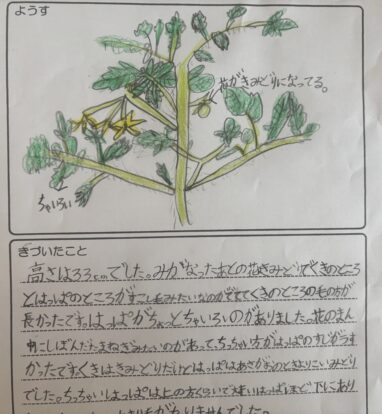 ようす
花がきみどりになってる。
ちゃいろい
きづいたこと
高さは33cmでした。みがなったあとの花きみどりでくきのところ
とはっぱのところがすこし毛みたいなのがでてくきのところの毛の方が
長かったです。はっぱがちょっとちゃいろいのがありました。花のまん
中にしぼんだたまねぎみたいのがあってちっちゃい方がはっぱのすじがうす
かったですくきはきみどりだけどはっぱはあさがおのときよりこいみどり
でした。ちっちゃいはっぱは上の方ぐらいで大きいはっぱほど下にあり
かわりませんでした。